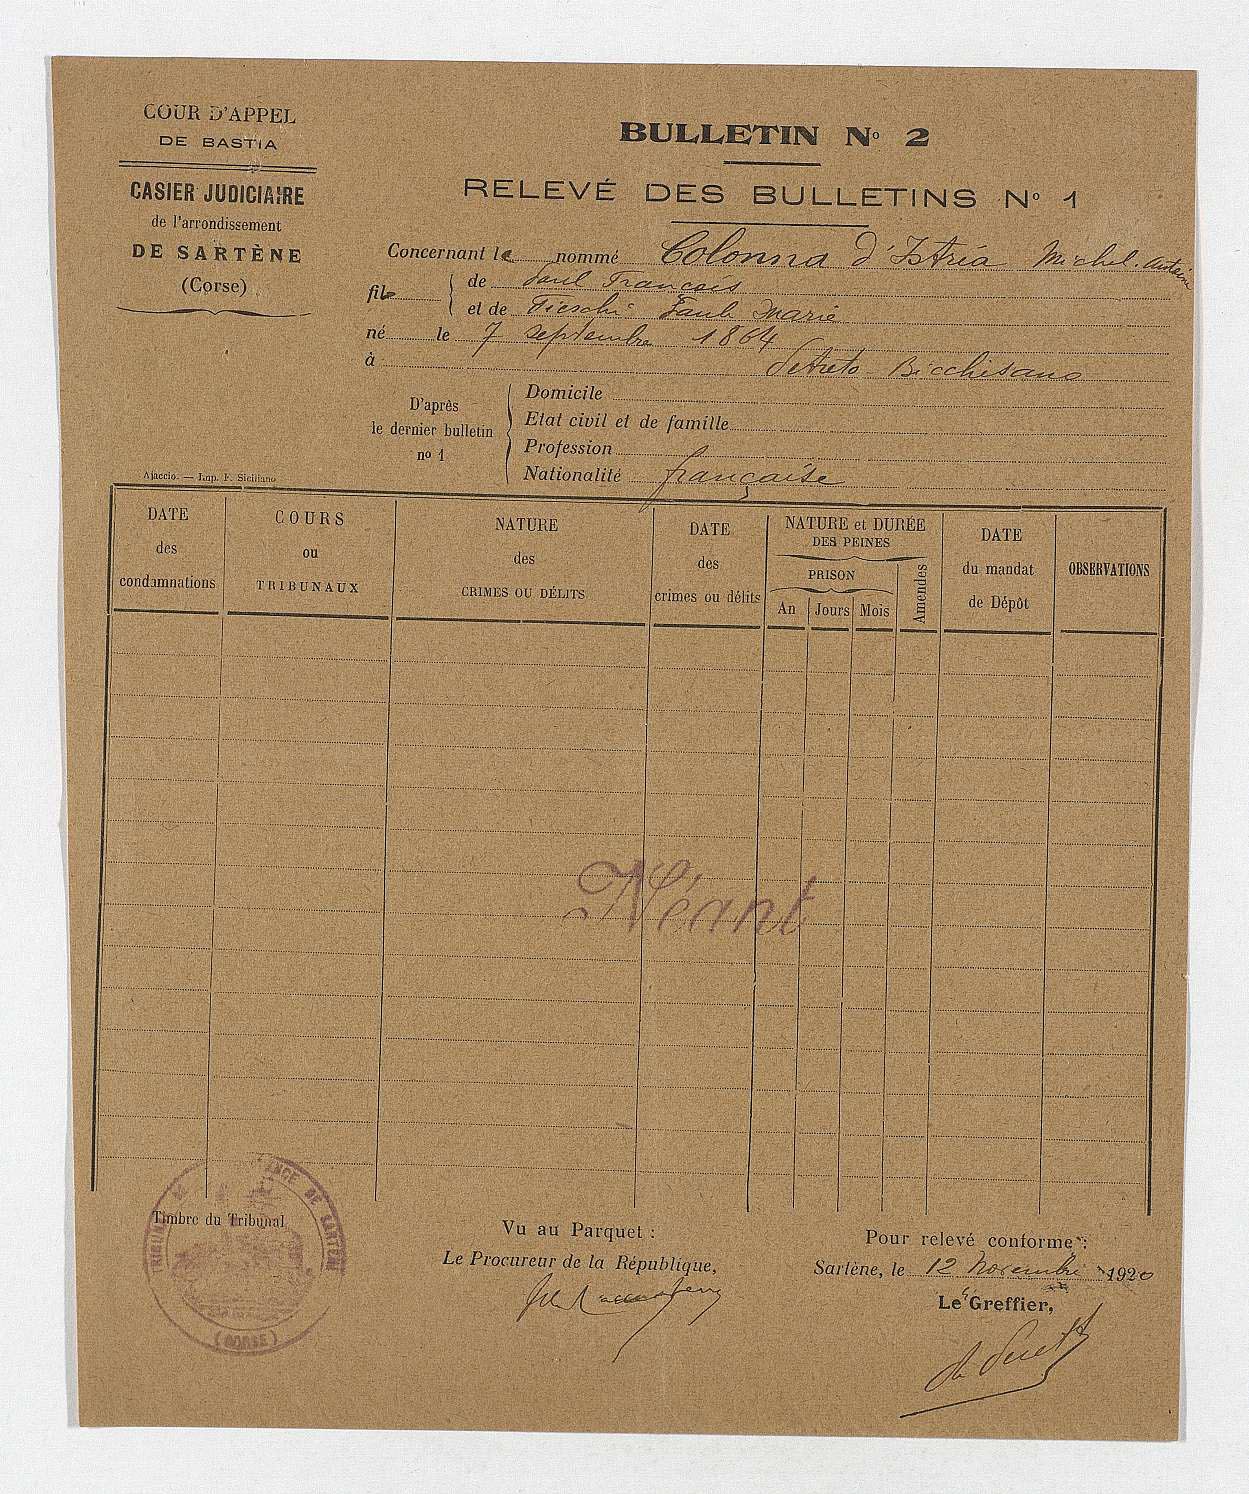 COUR D'APPEL
DE BASTIA
CASIER JUDICIAIRE
de l'arrondissement
DE SARTÈNE
(Corse)
BULLETIN Nº 2
RELEVÉ DES BULLETINS Nº 1
Concernant le nommé Colonna d'Istria Michel Antoine
fils de Paul François
et de Fieschi Paule Marie
né le 7 septembre 1864
à Petreto Bicchisano
D'après
le dernier bulletin
nº 1
Domicile
Etat civil et de famille
Profession
Nationalité française
Ajaccio. — Imp. F. Siciliano
DATE
des
condamnations
COURS
ou
TRIBUNAUX
NATURE
des
CRIMES OU DÉLITS
DATE
des
crimes ou délits
NATURE et DURÉE
DES PEINES
PRISON
An Jours Mois
Amendes
DATE
du mandat
de Dépôt
OBSERVATIONS
Néant
Timbre du Tribunal
TRIBUNAL DE INSTANCE DE SARTÈNE
(CORSE)
Vu au Parquet :
Le Procureur de la République,
Pour relevé conforme :
Sartène, le 12 Novembre 1920
Le Greffier,